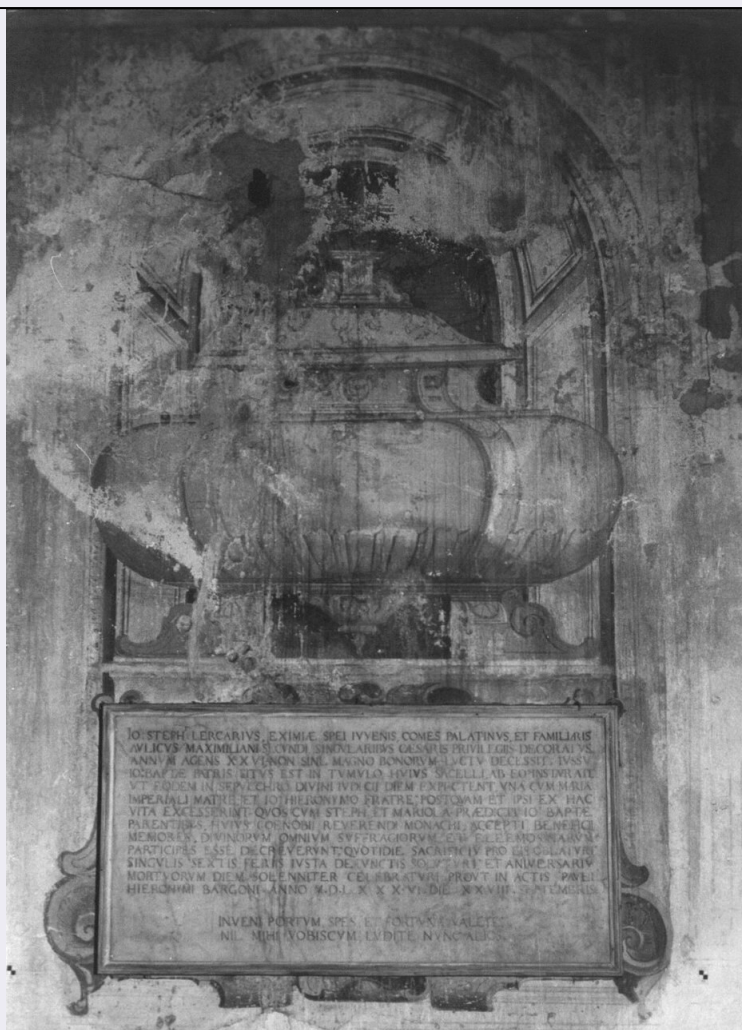 IO. STEPH. LERCARIVS, EXIMIÆ SPEI IVVENIS, COMES PALATINVS, ET FAMILIARIS
AVLICVS MAXIMILIANI SECVNDI SINGVLARIBVS CAESARIS PRIVILEGIIS DECORATVS,
ANNVM AGENS XXVI NON SINE MAGNO BONORVM LVCTV DECESSIT, IVSSV
IO: BAPTÆ PATRIS SITVS EST IN TVMVLO HVIVS SACELLI AB EO INSTAVRATI
VT EODEM IN SEPVLCHRO DIVINI IVDICII DIEM EXPECTENT VNA CVM MARIA
IMPERIALI MATRE, ET IO: HIERONYMO FRATRE, POSTQVAM ET IPSI EX HAC
VITA EXCESSERINT QVOS CVM STEPH. ET MARIOLA PRÆDICTI IO BAPTÆ
PARENTIBVS, HVIVS COENOBII REVERENDI MONACHI, ACCEPTI BENEFICI
MEMORES, DIVINORVM OMNIVM SVFFRAGIORVM, ET ELEEMOSINARVM
PARTICIPES ESSE DECREVERVNT, QVOTIDIE SACRIFICIS PRO EIS
SINGVLIS SEXTIS FERIIS IVSTA DEFVNCTIS ET ANIVERSARIV
MORTVORVM DIEM SOLENNITER CELEBRATVRI PROVT IN ACTIS PAVLI
HIERONIMI BARGONI ANNO M.D.L.XXXVI. DIE XXVIII.
INVENI PORTVM, SPES, ET FORTVNA VALETE
NIL MIHI VOBISCVM LVDITE NVNC ALIOS